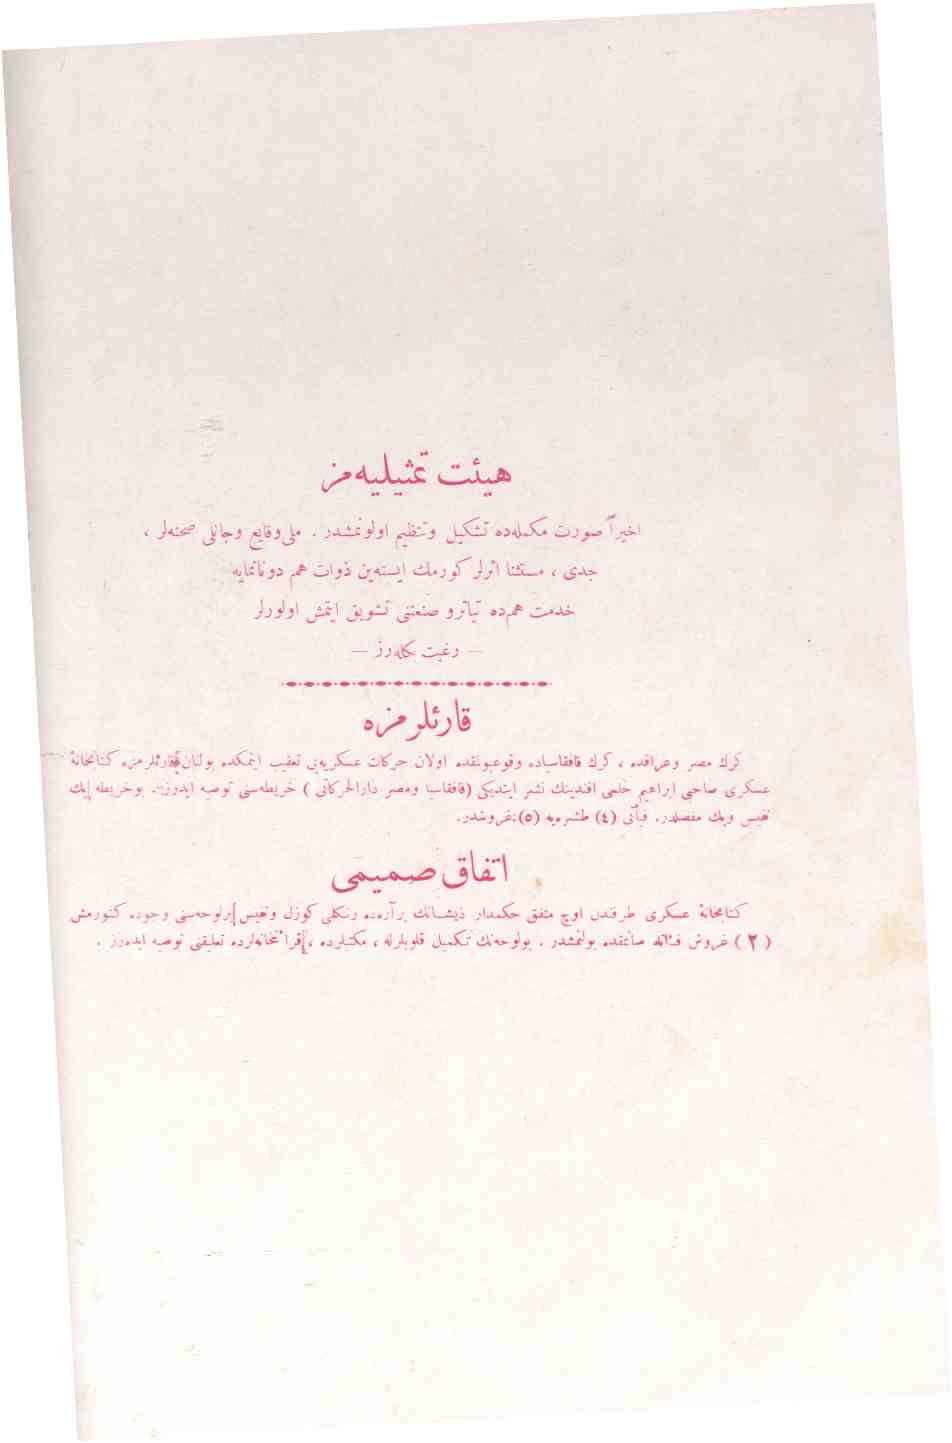 هيئت تمثيليه‌مز
اخيراً صورت مكمله‌ده تشكيل وتنظيم اولونمشدر . ملی وقايع وجانلی صحنه‌لر ،
جدی ، مستثنا اثرلر كورمك ايسته‌ين ذوات هم دونانمايه
خدمت هم‌ده تياترو صنعتنی تشويق ايتمش اولورلر
— رغبت بكله‌رز —
قارئلرمزه
كرك مصر وعراقده ، كرك قافقاسياده وقوعبولقده اولان حركات عسكريه‌يی تعقيب ايتمكده بولنان قارئلرمزه كتابخانهٔ
عسكری صاحبی ابراهيم حلمی افندينك نشر ايتديكی (قافقاسيا ومصر دارالحركاتی ) خريطه‌سنی توصيه ايدرز. بوخريطه پك
نفيس وپك مفصلدر. فيأتی (٤) طشره‌يه (٥) غروشدر.
اتفاق صميمی
كتابخانهٔ عسكری طرفندن اوچ متفق حكمدار ذيشانك برآرده رنكلی كوزل ونفيس برلوحه‌سنی وجوده كتورمش
( ٢ ) غروش فيئاتله صاتمقده بولنمشدر . بولوحه‌نك تكميل قلوبلرله ، مكتبلرده ، قرائتخانه‌لرده تعليقنی توصيه ايده‌رز .